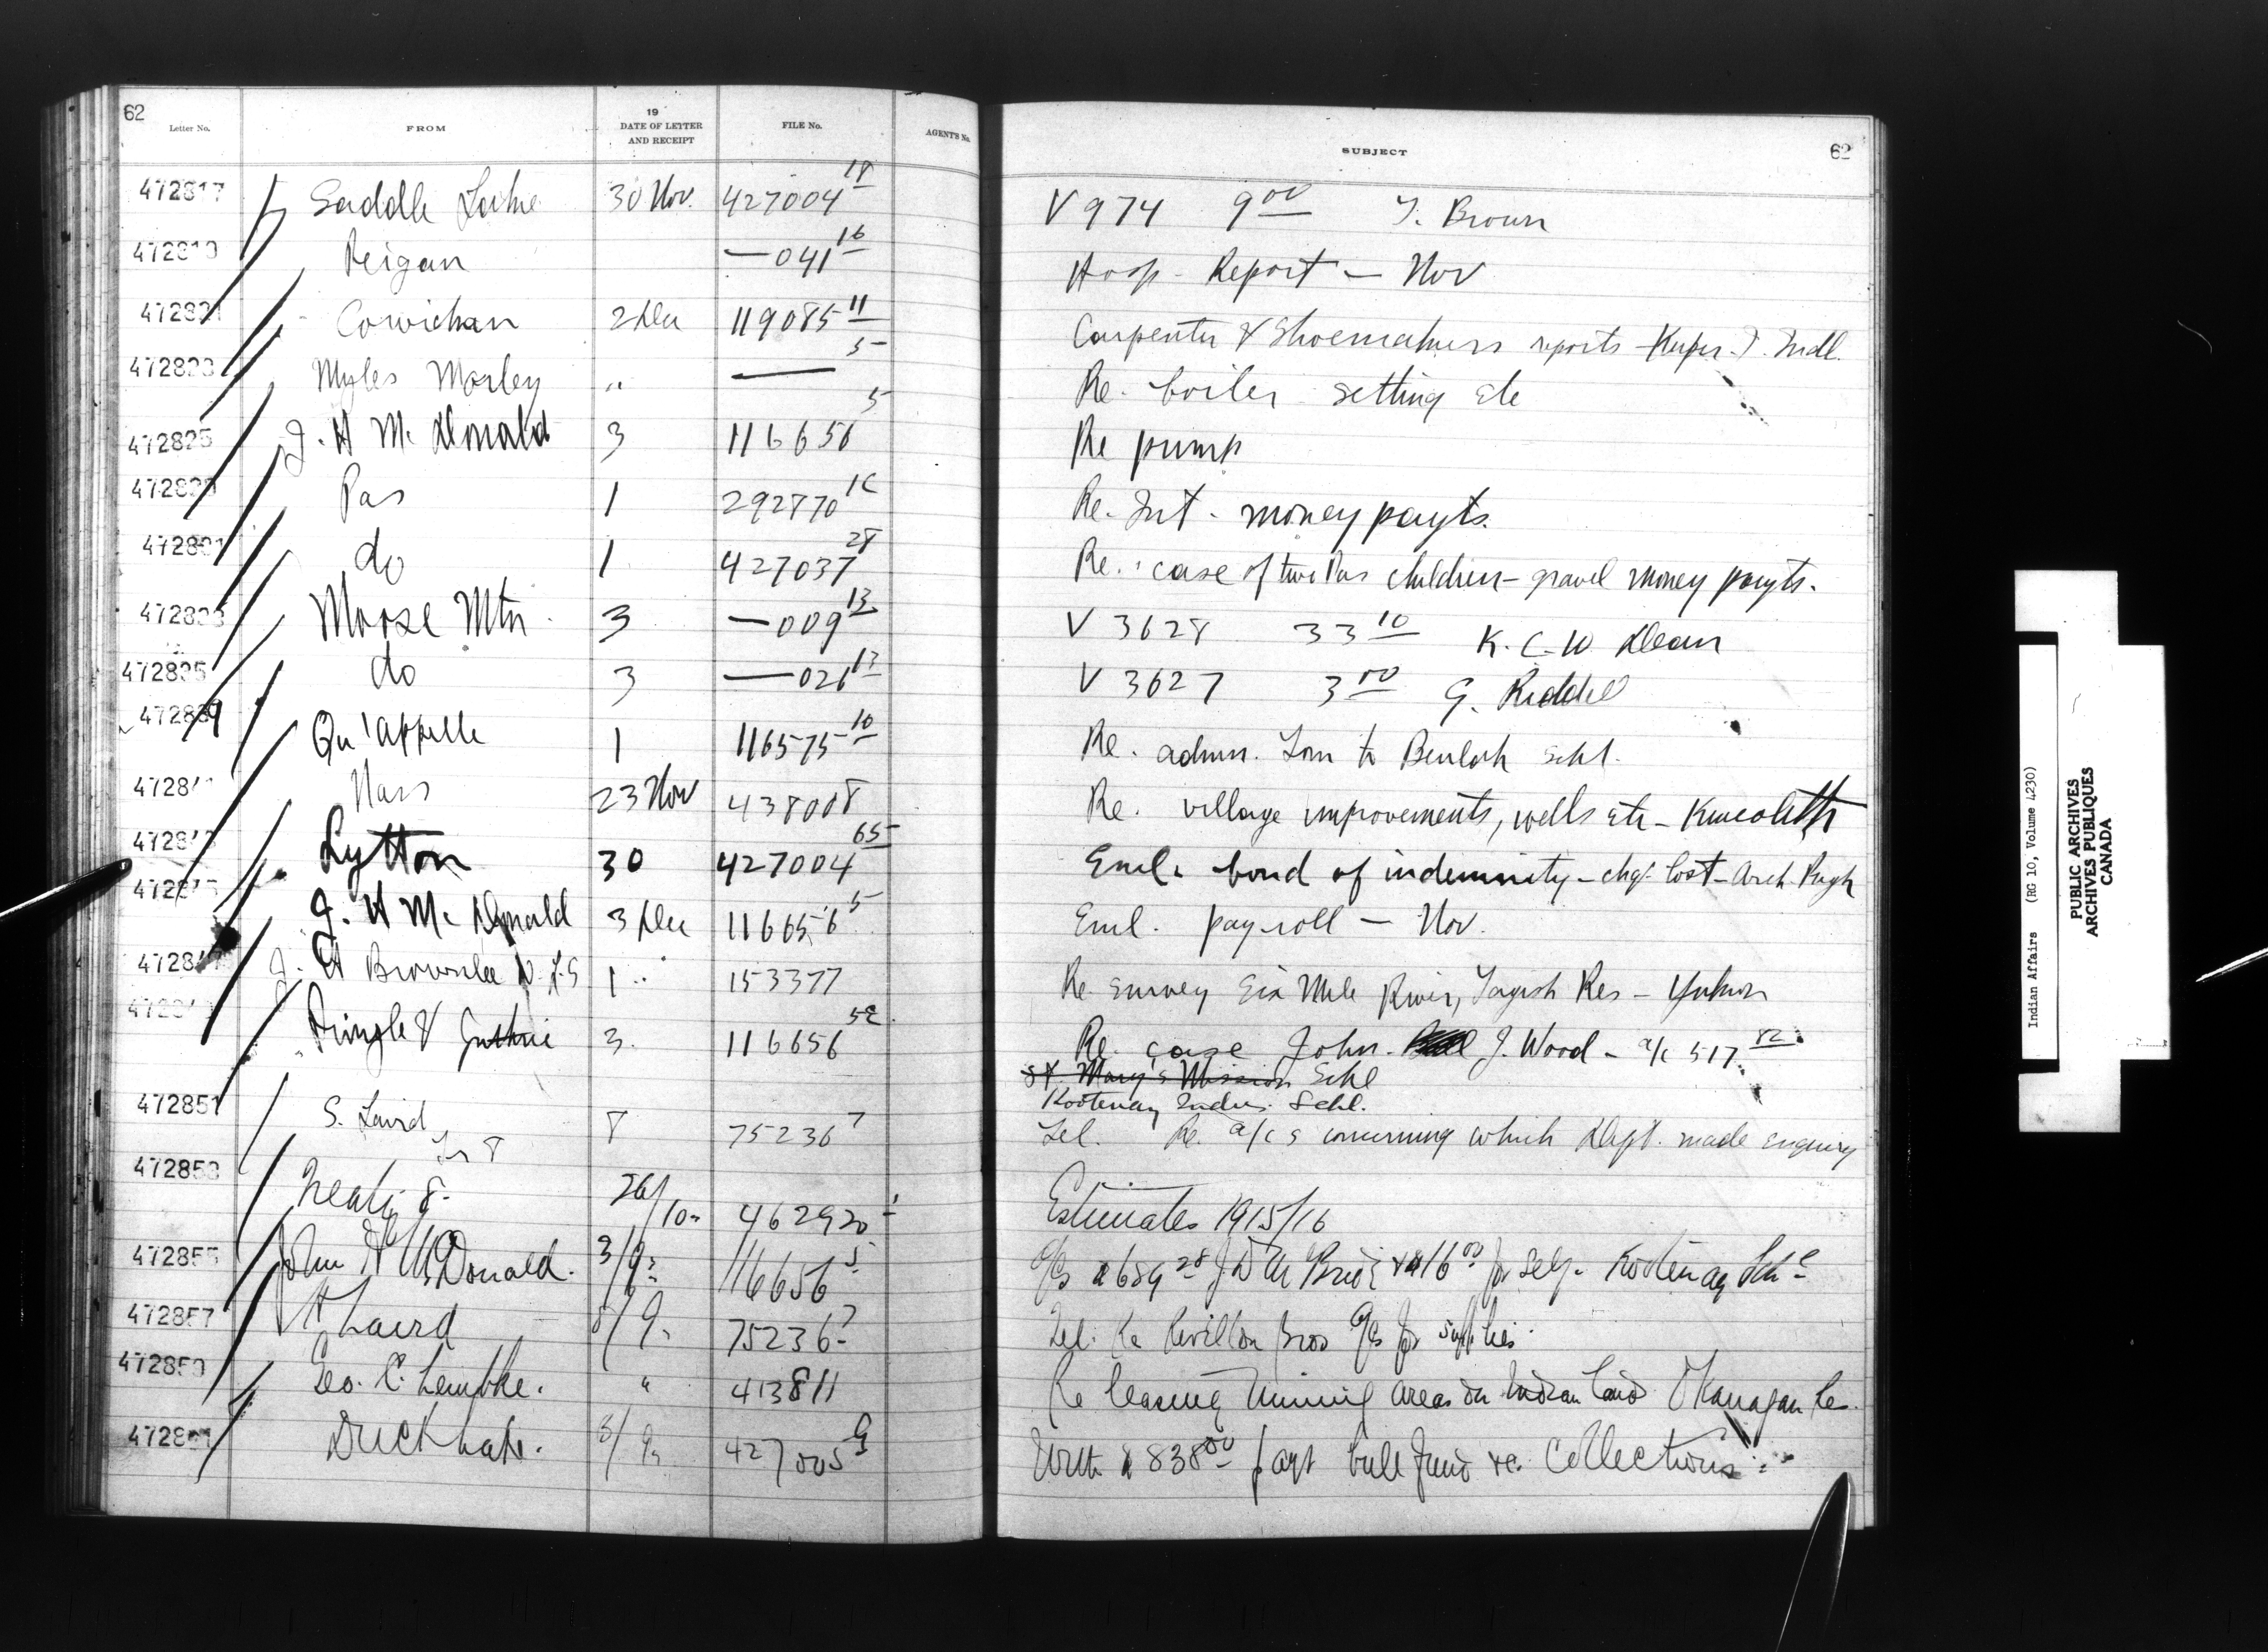 62
Letter No. FROM 19 DATE OF LETTER AND RECEIPT FILE No. AGENT'S No. SUBJECT 62
472817 Saddle Lake 30 Nov. 427004 18 V 974 9 00 T. Brown
Peigan — 041 16 Hosp. Report — Nov
Cowichan 2 Dec 119085 11 Carpenter & Shoemakers reports - Kuper. I. Indl.
Myles Morley " — 5 Re. boiler setting etc
472825 J. H Mc Donald 3 116656 5 Re pump
Pas 1 292870 Re. Int. money payts.
do 1 427037 28 Re. case of two Pas children - gravel money payts.
Moose Mtn 3 — 009 13 V 3628 33 10 K. C. W Dean
472835 do 3 — 026 13 V 3627 3 00 G. Riddell
472839 Qu'appelle 1 116575 10 Re. admn. to Beulah Schl.
Nass 23 Nov 438008 Re. village improvements, wells etc - Kincolith
Lytton 30 427004 65 Encl. bond of indemnity - chq. lost - Arch. Pugh
J. H Mc Donald 3 Dec 116656 5 Encl. pay-roll — Nov.
J. H Brownlee D. L. S 1 " 153377 Re survey Six Mile River, Tagish Res - Yukon
Pringle & Guthrie 3. 116656 52 Re. case John J. Wood - a/c 517. 82
St. Mary's Mission Schl
Kootenay Indus. Schl.
472851 S. Laird 8 75236 7 Tel. Re. a/c s concerning which Dept. made enquiry
472853 26/10 462920 1 Estimates 1915/16
472855 John H McDonald. 116656 5 689 28 & 16 00 for self. Kootenay Schl
472857 Laird 8/ 75236 7 Tel. Re Revillon Bros a/cs for supplies.
Geo. C. Lembke. " 413811 Re leasing mining areas on Indian land Okanagan
Duck Lake. 427005 9 With 838 00 payt bull fund &c. Collections
Indian Affairs (RG 10, Volume 4230)
PUBLIC ARCHIVES
ARCHIVES PUBLIQUES
CANADA